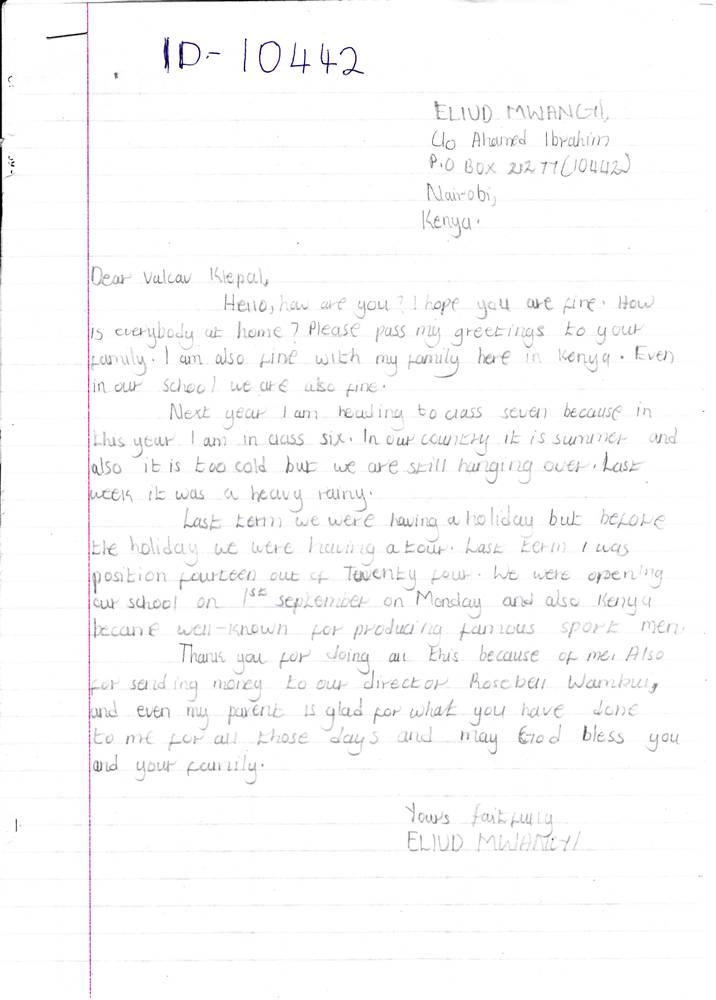 ID-10442
ELIUD MWANGI,
C/o Ahamed Ibrahim
P.O BOX 21277(10442)
Nairobi,
Kenya.
Dear Valcav Klepal,
Hello, how are you? I hope you are fine. How
is everybody at home? Please pass my greetings to your
family. I am also fine with my family here in Kenya. Even
in our school we are also fine.
Next year I am heading to class seven because in
this year I am in class six. In our country it is summer and
also it is too cold but we are still hanging over. Last
week it was a heavy rainy.
Last term we were having a holiday but before
the holiday we were having a tour. Last term I was
position fourteen out of Twenty four. We were opening
our school on 1st september on Monday and also Kenya
became well-known for producing famous sport men.
Thank you for doing all this because of me. Also
for sending money to our director Rosebell Wambui,
and even my parent is glad for what you have done
to me for all those days and may God bless you
and your family.
Yours faithfully
ELIUD MWANGI